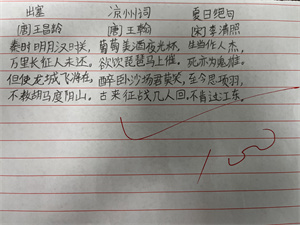 出塞 凉州词 夏日绝句
[唐]王昌龄 [唐]王翰 [宋]李清照
秦时明月汉时关, 葡萄美酒夜光杯, 生当作人杰,
万里长征人未还。 欲饮琵琶马上催。 死亦为鬼雄。
但使龙城飞将在, 醉卧沙场君莫笑, 至今思项羽,
不教胡马度阴山。 古来征战几人回。 不肯过江东。